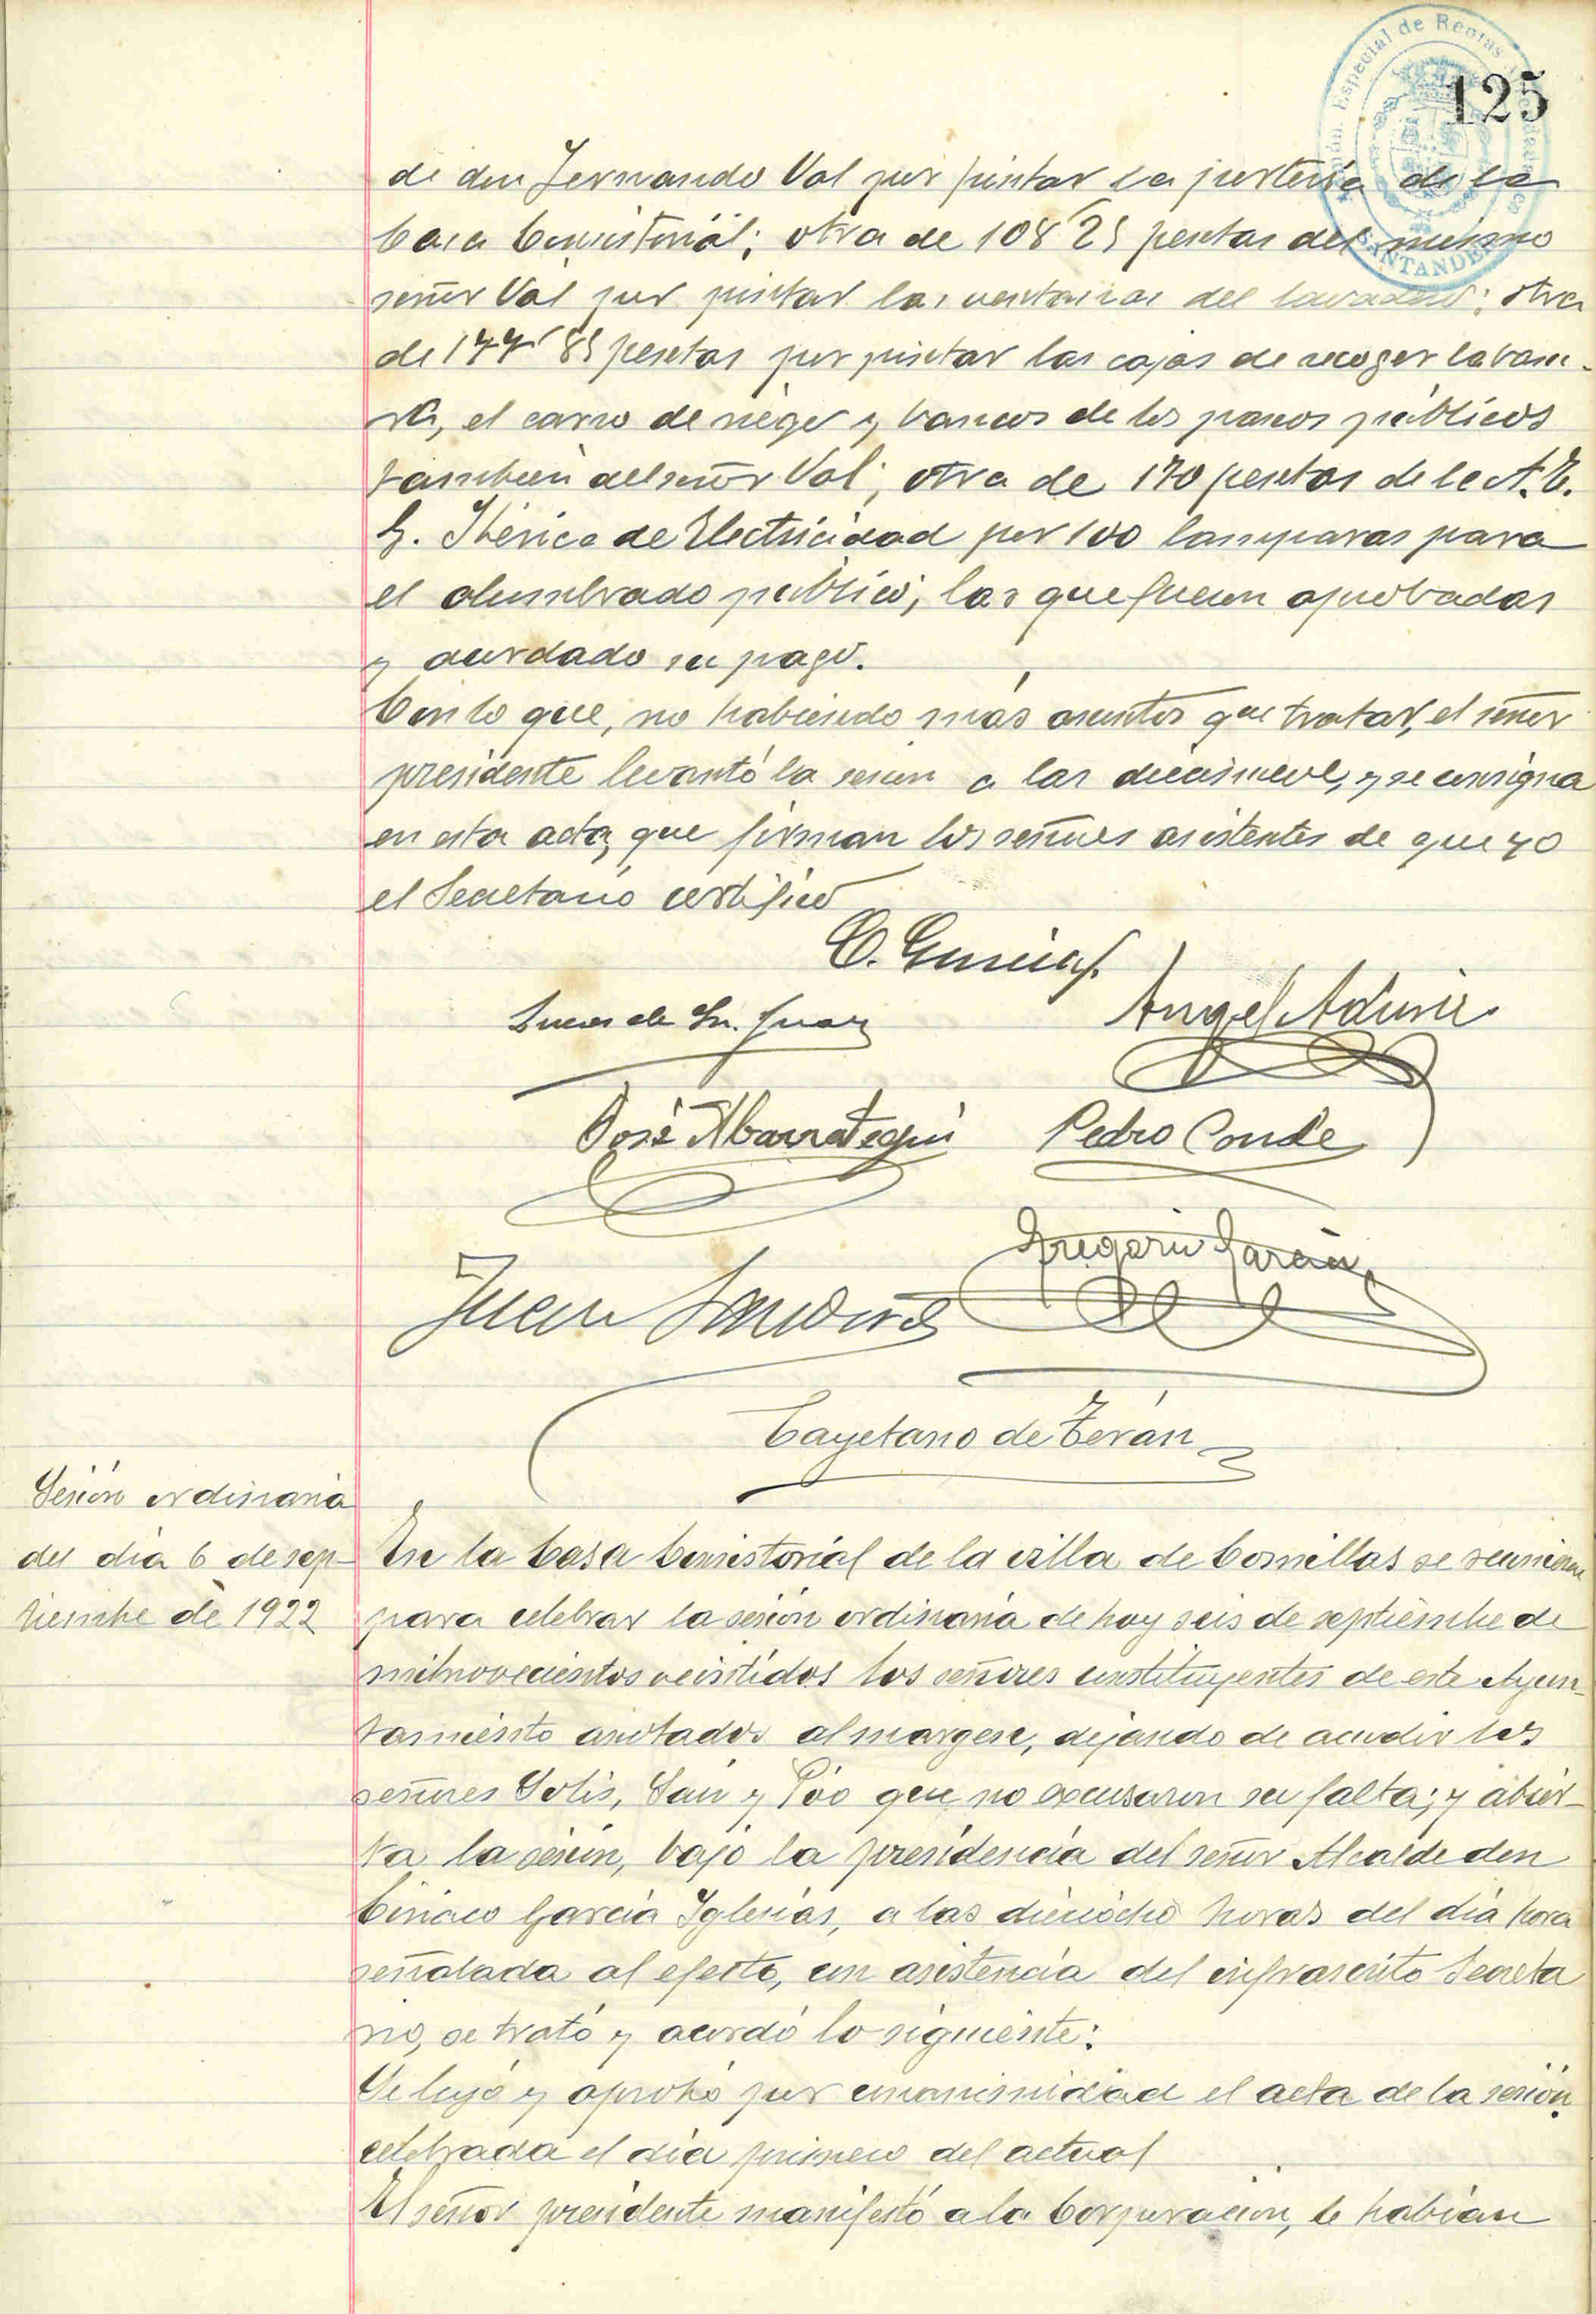 125
Especial de Rentas
SANTANDER
de don Fernando Val por pintar la portería de la
Casa Consistorial; otra de 108'25 pesetas del mismo
señor Val por pintar las ventanas del lavadero; otra
de 177'85 pesetas por pintar las cajas de recoger la basu-
ra, el carro de riego y bancos de los paseos públicos
tambien del señor Val; otra de 170 pesetas de la A.E.
G. Ibérica de Electricidad por 100 lamparas para
el alumbrado público; las que fueron aprobadas
y acordado su pago.
Con lo que, no habiendo más asuntos que tratar, el señor
presidente levantó la sesion a las diecinueve, y se consigna
en esta acta, que firman los señores asistentes de que yo
el Secretario certifico
C. García
Lucas de Sn. Juan
Angel
José Abarrategui Pedro Conde
Gregorio García
Juan
Cayetano de Terán
Sesión ordinaria
del día 6 de sep-
tiembre de 1922
En la Casa Consistorial de la villa de Comillas se reunieron
para celebrar la sesión ordinaria de hoy seis de septiembre de
mil novecientos veintidos los señores constituyentes de este Ayun-
tamiento anotados al margen, dejando de acudir los
señores Solís, San y Póo que no excusaron su falta; y abier-
ta la sesión, bajo la presidencia del señor Alcalde don
Ciriaco García Iglesias, a las dieciocho horas del día hora
señalada al efecto, con asistencia del infrascrito Secreta
rio, se trató y acordó lo siguiente:
Se leyó y aprobó por unanimidad el acta de la sesión
celebrada el día primero del actual
El señor presidente manifestó a la Corporación, le habían